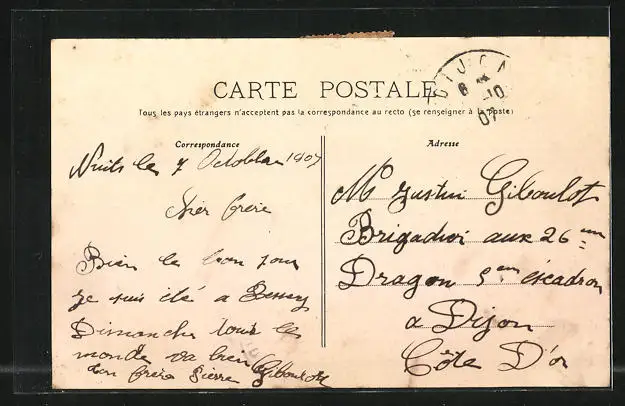 CARTE POSTALE
Tous les pays étrangers n'acceptent pas la correspondance au recto (se renseigner à la poste)
DIJON
8
-10
07
Correspondance
Nuits le 7 Octobre 1907
cher frere
Bien le bon jour
je suis été a
Dimanche tous le
monde va bien
ton frère Pierre Giboulot
Adresse
M Justin Giboulot
Brigadier aux 26
Dragon 5 escadron
a Dijon
Côte D'or